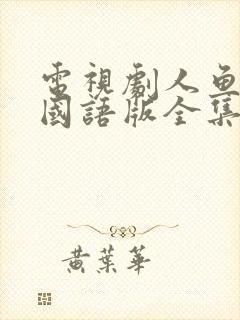 電視劇人魚
國語版全集
黃葉華